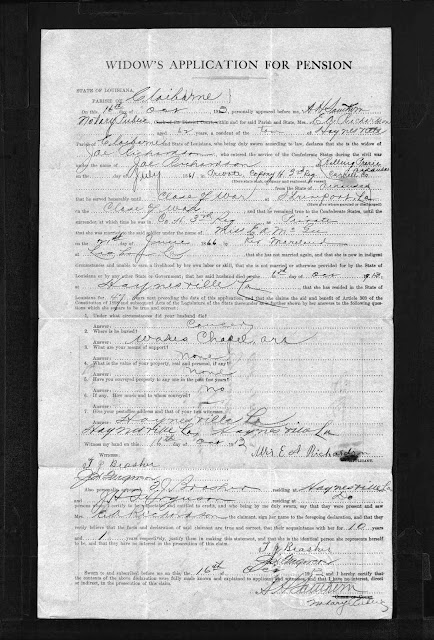 WIDOW'S APPLICATION FOR PENSION
STATE OF LOUISIANA,
PARISH OF Claiborne
On this 16th day of Oct, personally appeared before me,
Notary Public in and for said Parish and State, Mrs. E A Richardson
aged years, a resident of the Town of Haynesville
Parish of Claiborne State of Louisiana, who being duly sworn according to law, declares that she is the widow of
Joe Richardson, who entered the service of the Confederate States during the civil war
under the name of Joe Richardson at
on the day of July Private Company H 3rd Reg
from the State of Arkansas
that he served honorably until Close of War at Shreveport La
on the Close of War and that he remained true to the Confederate States, until the
surrender, at which time he was in Co H 3rd Reg Private
that she was married to the said soldier under the name of Miss E A
on the 21st day of June 1866 by Rev Moreland
that she has not married again, and that she is now in indigent
circumstances and unable to earn a livelihood by her own labor or skill, that she is not receiving or otherwise provided for by the State of
Louisiana or by any other State or Government; that her said husband died on the 6th day of Oct 1912
at Haynesville La that she has resided in the State of
Louisiana for years next preceding the date of this application, and that she claims the aid and benefit of Article 303 of the
Constitution of and subsequent Acts of the Legislature of the State thereunto as is further shown by her answers to the following questions
which she swears to be true and correct:
1. Under what circumstances did your husband die?
Answer: Cancer
2. Where is he buried?
Answer: Wades Chapel, Ark
3. What are your means of support?
Answer: None
4. What is the value of your property, real and personal, if any?
Answer: None
5. Have you conveyed property to any one in the past few years?
Answer: No
6. If any. How much and to whom conveyed?
Answer:
7. Give your postoffice address and that of your two witnesses.
Answer: Haynesville La
Haynesville La, Haynesville La
Witness my hand on this 16th day of Oct 1912
Witness: Mrs E A Richardson
T J Brasher
Ferguson
Also personally appeared T J Brasher residing at Haynesville La
Ferguson residing at Do
persons whom I certify to be respectable and entitled to credit, and who being by me duly sworn, say that they were present and saw
E A Richardson, the claimant, sign her name to the foregoing declaration, and that they
verily believe the facts and declaration of said claimant are true and earned, that their acquaintance with her for 10 years
and years respectively, justify them in making this statement, and that she is the identical person she represents herself
to be, and that they have no interest in the prosecution of this claim.
T J Brasher
Ferguson
Sworn to and subscribed before me this the 16th day of Oct and I hereby certify that
the contents of the above declaration were fully made known and explained to applicant and witnesses, and that I have no interest, direct
or indirect, in the prosecution of this claim.
Notary Public